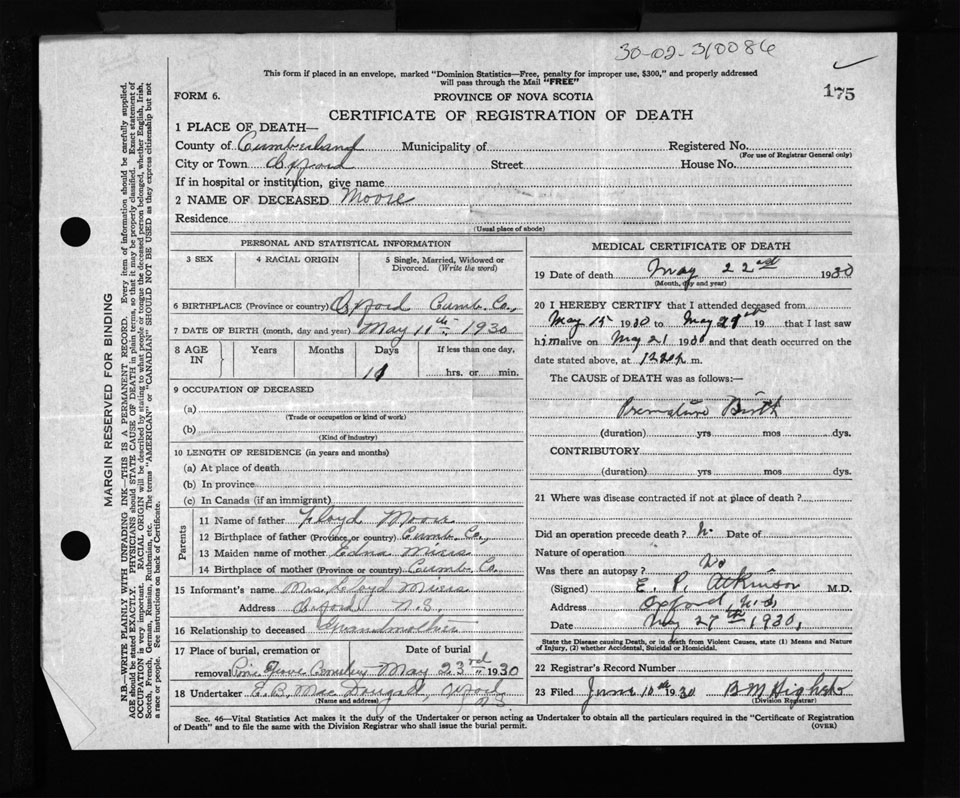 30-02-310086
175
This form if placed in an envelope, marked "Dominion Statistics—Free, penalty for improper use, $300," and properly addressed
will pass through the Mail "FREE"
FORM 6.
PROVINCE OF NOVA SCOTIA
CERTIFICATE OF REGISTRATION OF DEATH
1 PLACE OF DEATH—
County of Cumberland Municipality of Registered No.
(For use of Registrar General only)
City or Town Oxford Street House No.
If in hospital or institution, give name
2 NAME OF DECEASED Moore
Residence
(Usual place of abode)
PERSONAL AND STATISTICAL INFORMATION
3 SEX
4 RACIAL ORIGIN
5 Single, Married, Widowed or
Divorced. (Write the word)
6 BIRTHPLACE (Province or country) Oxford Cumb. Co.,
7 DATE OF BIRTH (month, day and year) May 11th 1930
8 AGE IN
Years Months Days If less than one day,
11 hrs. or min.
9 OCCUPATION OF DECEASED
(a)
(Trade or occupation or kind of work)
(b)
(Kind of industry)
10 LENGTH OF RESIDENCE (in years and months)
(a) At place of death
(b) In province
(c) In Canada (if an immigrant)
Parents
11 Name of father Floyd Moore
12 Birthplace of father (Province or country) Cumb. Co.,
13 Maiden name of mother Edna
14 Birthplace of mother (Province or country) Cumb. Co.
15 Informant's name Mrs.
Address Oxford N.S.
16 Relationship to deceased Grandmother
17 Place of burial, cremation or removal
Date of burial
Pine Grove Cemetery May 23rd 1930
18 Undertaker E.B. Mac Dougall, Oxford N.S.
(Name and address)
MEDICAL CERTIFICATE OF DEATH
19 Date of death May 22nd 1930
(Month, day and year)
20 I HEREBY CERTIFY that I attended deceased from
May 15 1930 to May 19 that I last saw
him alive on May 21 1930 and that death occurred on the
date stated above, at m.
The CAUSE of DEATH was as follows:—
Premature Birth
(duration) yrs mos dys.
CONTRIBUTORY
(duration) yrs mos dys.
21 Where was disease contracted if not at place of death?
Did an operation precede death? Date of
Nature of operation
Was there an autopsy? No
(Signed) E. P. Atkinson M.D.
Address Oxford N.S.
Date May 27th 1930,
State the Disease causing Death, or in death from Violent Causes, state (1) Means and Nature
of Injury, (2) whether Accidental, Suicidal or Homicidal.
22 Registrar's Record Number
23 Filed June 10th 1930
(Division Registrar)
Sec. 46—Vital Statistics Act makes it the duty of the Undertaker or person acting as Undertaker to obtain all the particulars required in the "Certificate of Registration
of Death" and to file the same with the Division Registrar who shall issue the burial permit.
(OVER)
MARGIN RESERVED FOR BINDING
N.B.—WRITE PLAINLY WITH UNFADING INK—THIS IS A PERMANENT RECORD. Every item of information should be carefully supplied.
AGE should be stated EXACTLY. PHYSICIANS should STATE CAUSE OF DEATH in plain terms, so that it may be properly classified. Exact statement of
OCCUPATION is very important. RACIAL ORIGIN will be described by stating to what people or tongue the deceased person belonged, whether English, Irish,
Scotch, French, German, Russian, Ruthenian, etc. The terms "AMERICAN" or "CANADIAN" SHOULD NOT BE USED as they express citizenship but not
a race or people. See instructions on back of Certificate.